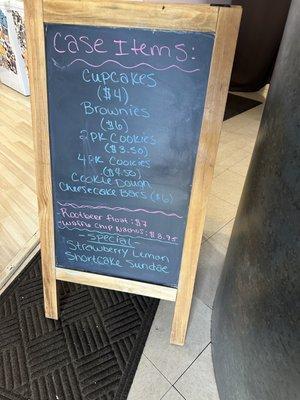 Case Items:
Cupcakes
($4)
Brownies
($6)
2PK Cookies
($3.50)
4PK Cookies
($4.50)
Cookie Dough
Cheesecake Bars ($6)
Rootbeer float: $7
Waffle Chip Nachos: $8.95
- Special -
Strewberry Lemon
Shortcake Sundae